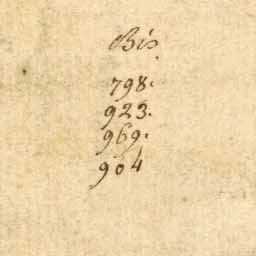 Bis
798.
923.
969.
904